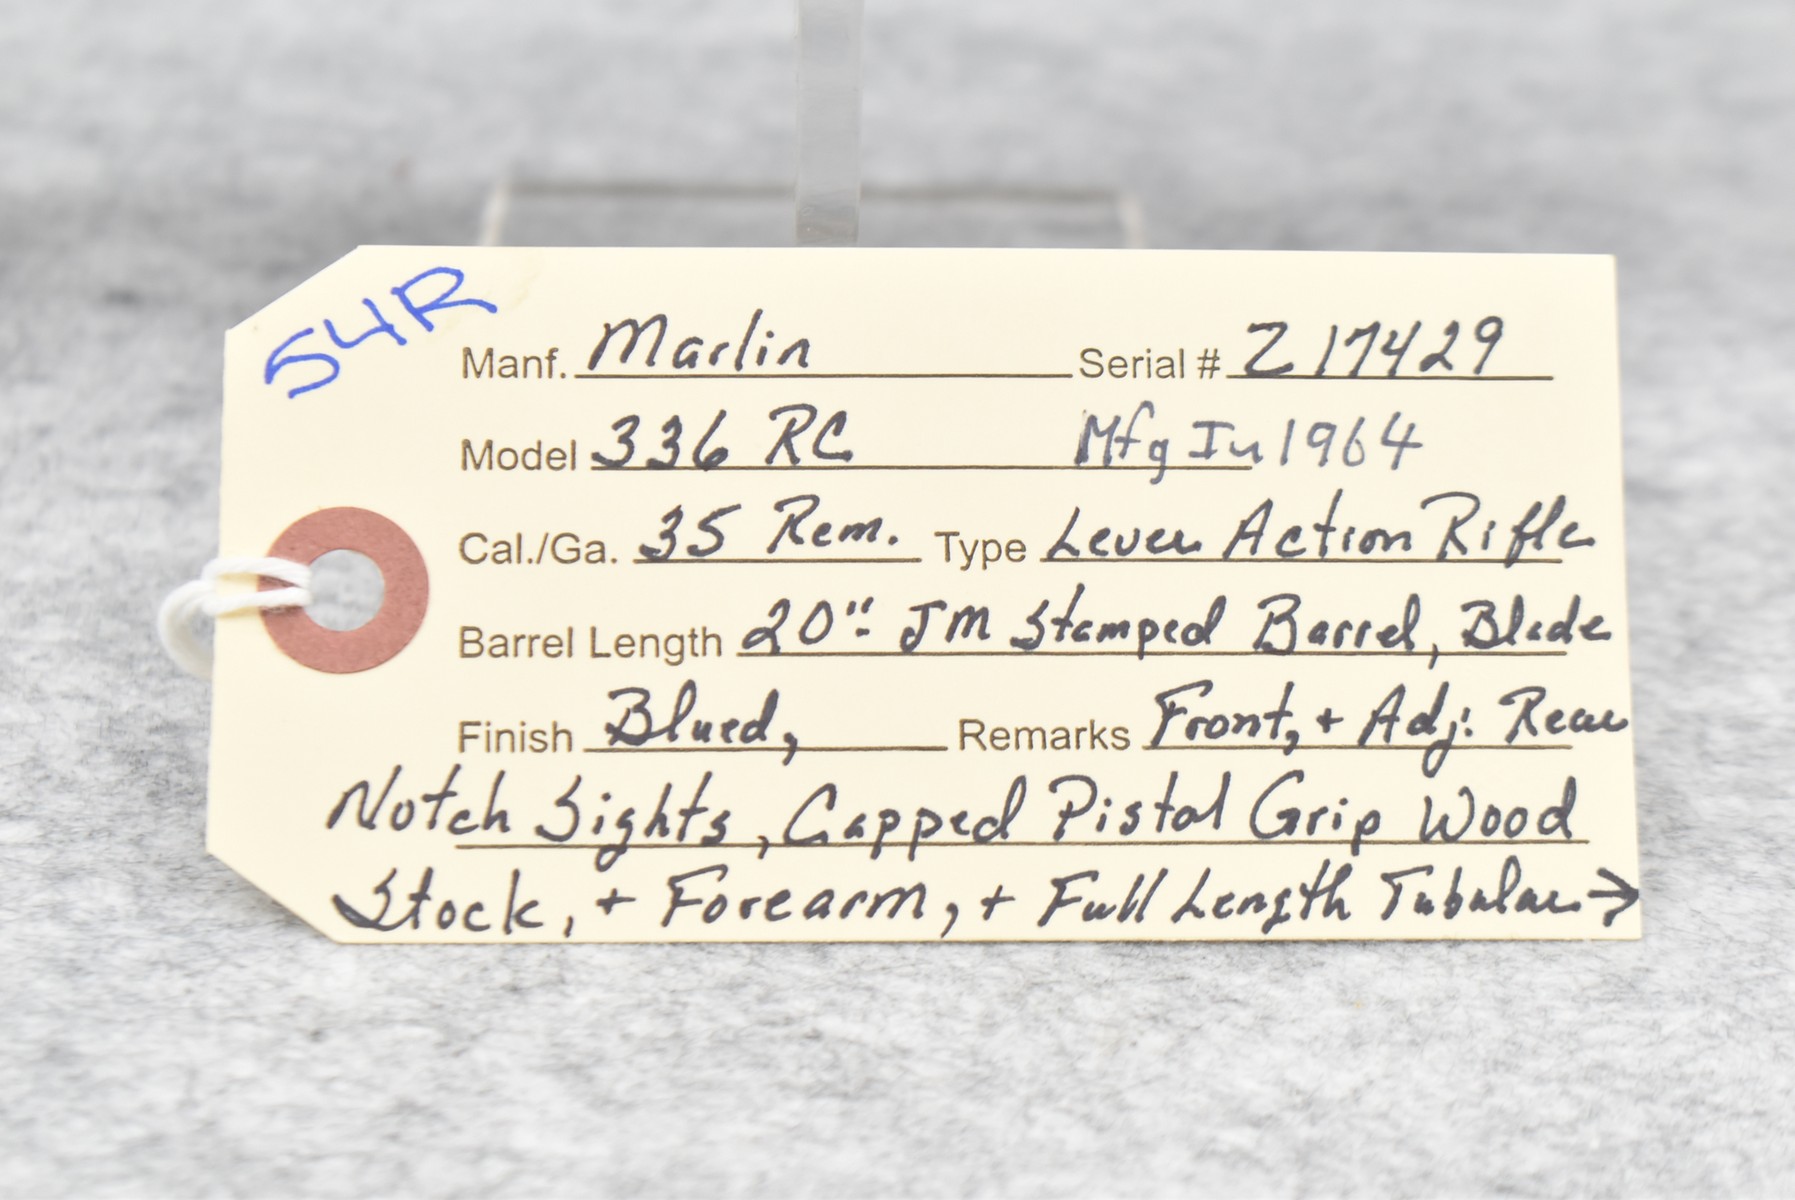 54R
Manf. Marlin Serial # Z17429
Model 336 RC Mfg In 1964
Cal./Ga. 35 Rem. Type Lever Action Rifle
Barrel Length 20" JM Stamped Barrel, Blade
Finish Blued, Remarks Front, + Adj. Rear
Notch Sights, Capped Pistol Grip Wood
Stock, + Forearm, + Full Length Tubular →